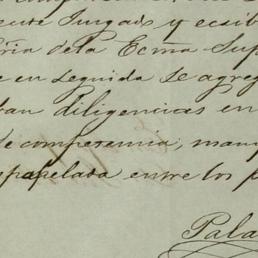 ente Jusgado y ecsib
ria de la Ecma Sup
e en seguida se agreg
ban diligencias en
de competencia, man
papelada entre los p
Pala